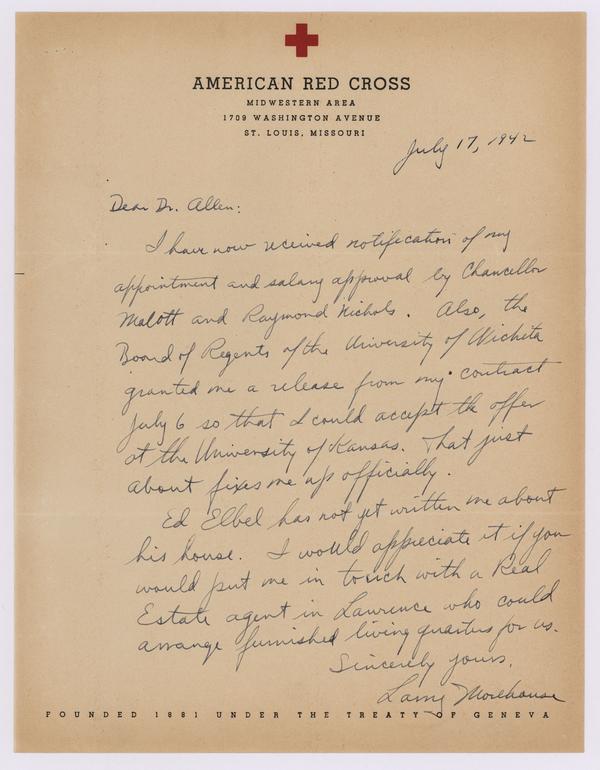 AMERICAN RED CROSS
MIDWESTERN AREA
1709 WASHINGTON AVENUE
ST. LOUIS, MISSOURI
July 17, 1942
Dear Dr. Allen:
I have now received notification of my
appointment and salary approval by Chancellor
Malott and Raymond Nichols. Also, the
Board of Regents of the University of Wichita
granted me a release from my contract
July 6 so that I could accept the offer
at the University of Kansas. That just
about fixes me up officially.
Ed Elbel has not yet written me about
his house. I would appreciate it if you
would put me in touch with a Real
Estate agent in Lawrence who could
arrange furnished living quarters for us.
Sincerely yours,
Larry Morehouse
FOUNDED 1881 UNDER THE TREATY OF GENEVA